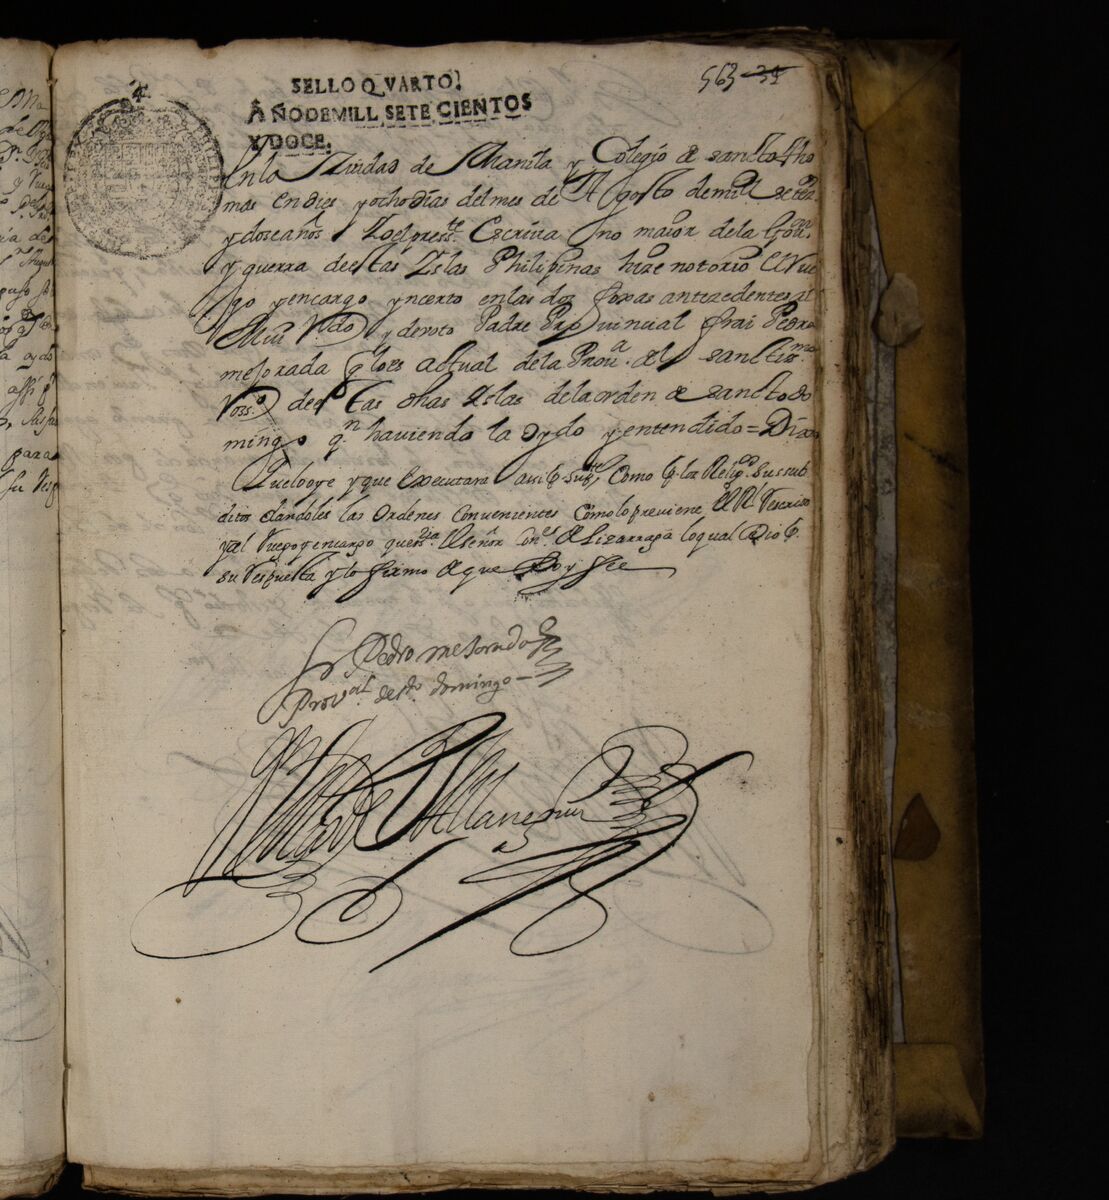 563 35
4
SELLO QVARTO,
AÑO DE MILL SETECIENTOS
Y DOCE.
En la Ziudad de Manila y Colegio de sancto tho
mas en dies y ocho dias del mes de Agosto de mill setezs
y dose años Yo el presste Escriva no maior de la Govon
y guerra de estas Yslas Philipinas hize notorio el Rue
go y encargo ynserto en las dos foxas antezedentes al
Mui Rdo y devoto Padre Provinzial frai Pedro
mejorada q lo es actual de la Prova del sanctismo
Rosso de estas dhas Yslas de la orden de sancto do
mingo qn haviendo la oydo y entendido = Dixo
Que lo oye y que executara assi p su pte Como p los Religos sus sub
ditos dandoles las Ordenes Convenientes Como lo previene el Rl Rescripto
y el Ruego y encargo que su sa el señor de Lizarraga lo qual dio p
su respuesta y lo firmo de que Doy fee
Fr Pedro mejorada
Proval de sto domingo